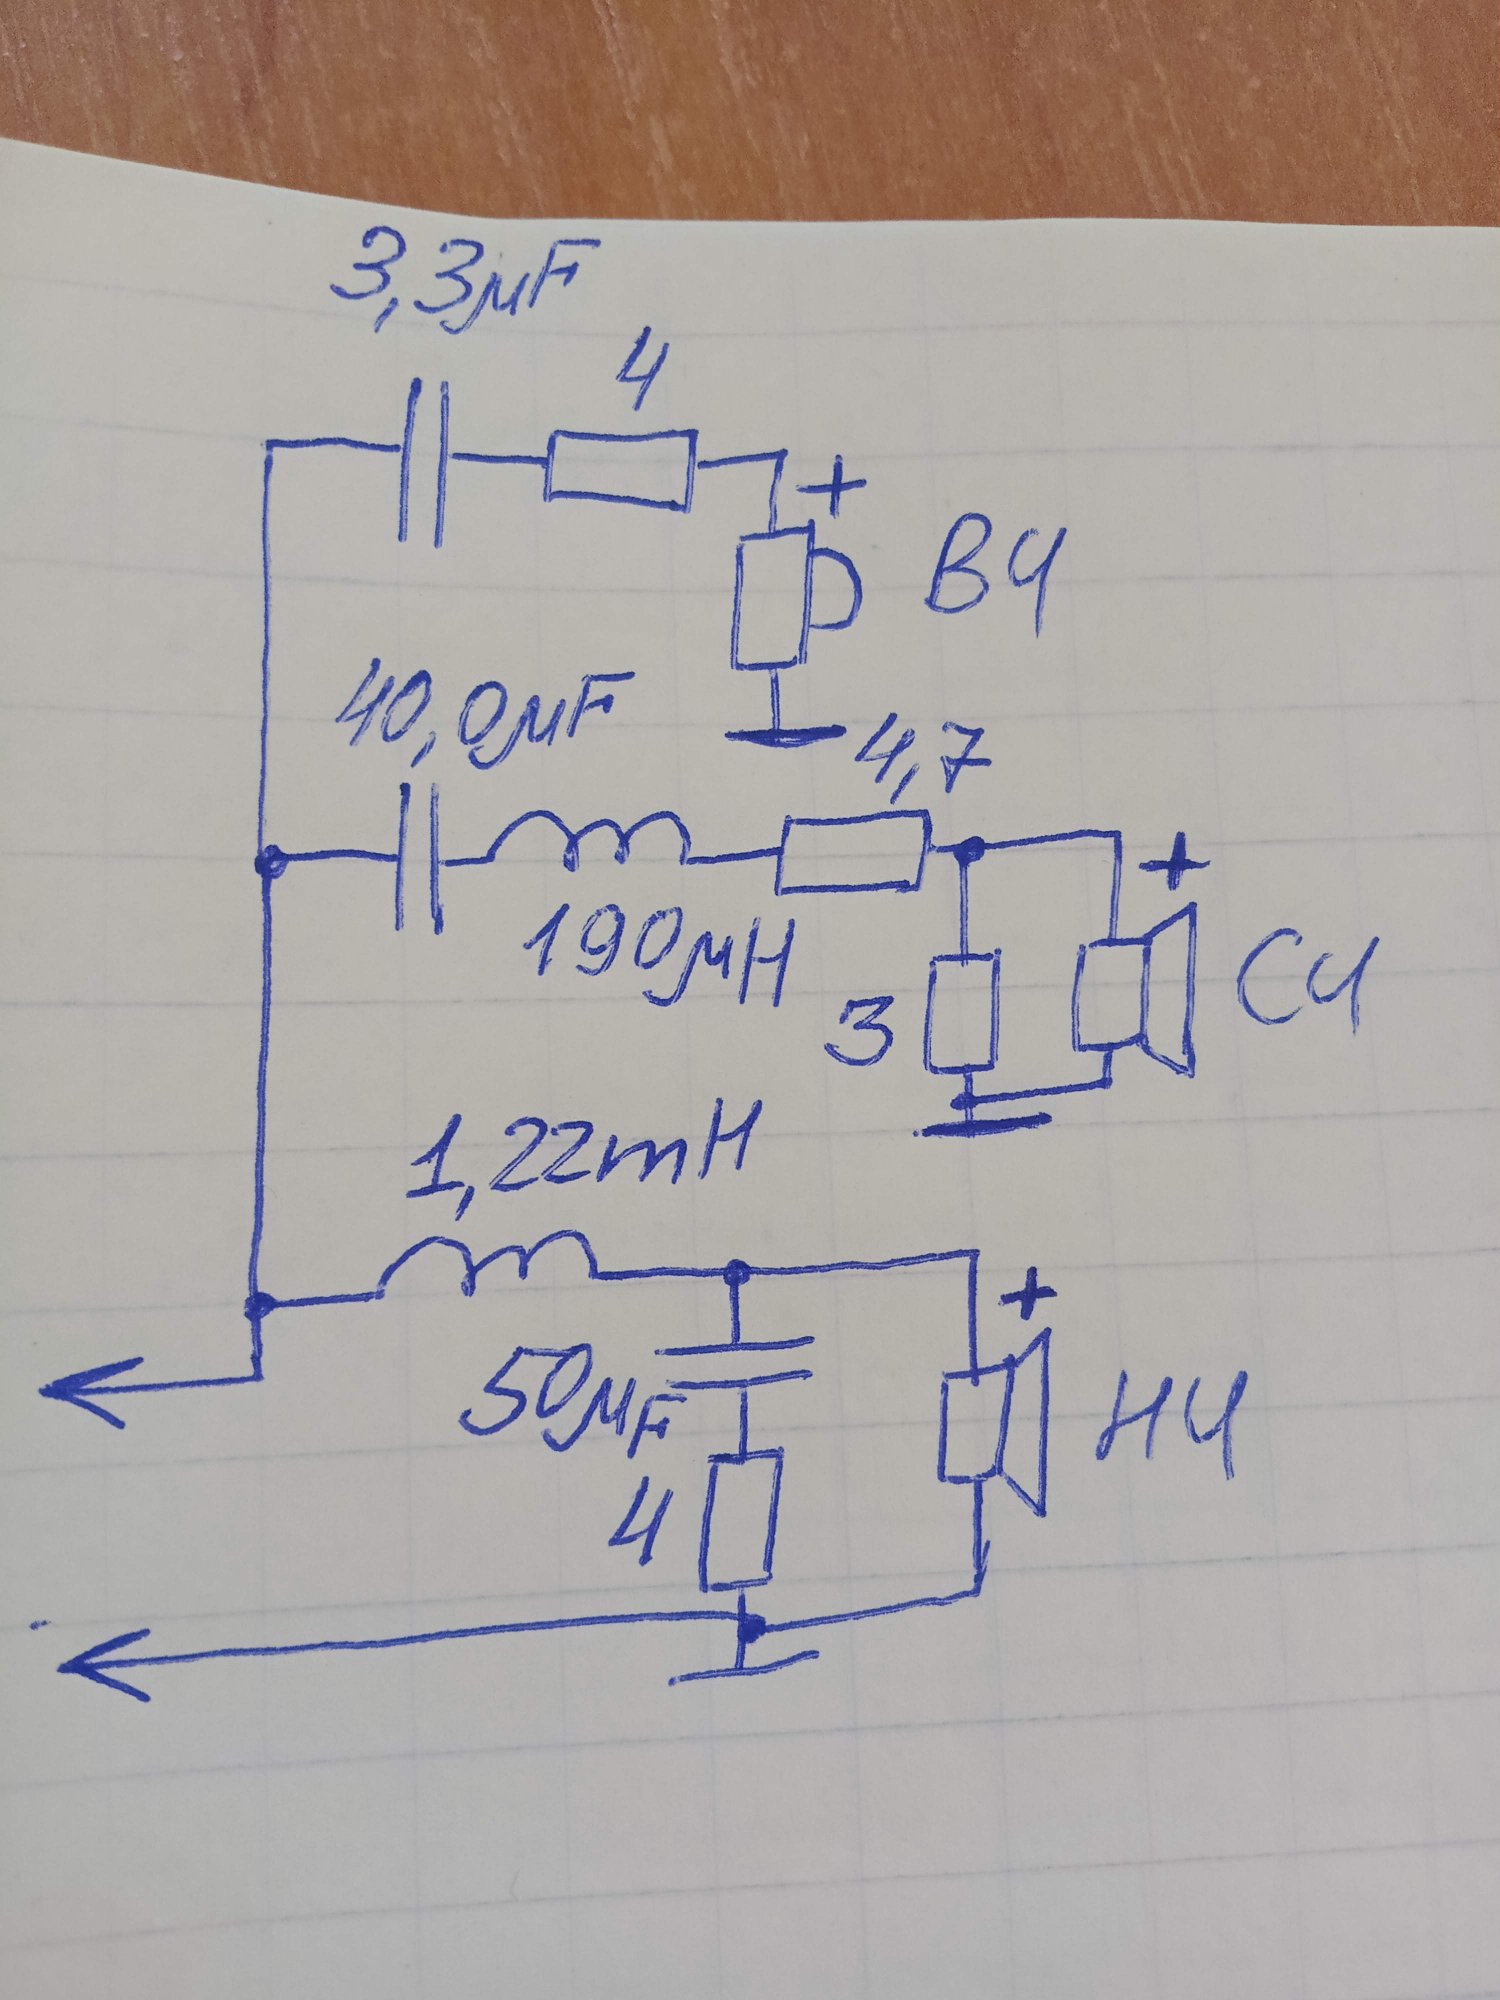 3,3µF
4
+
ВЧ
40,0µF
4,7
+
190µH
3
СЧ
1,22mH
+
50µF
НЧ
4